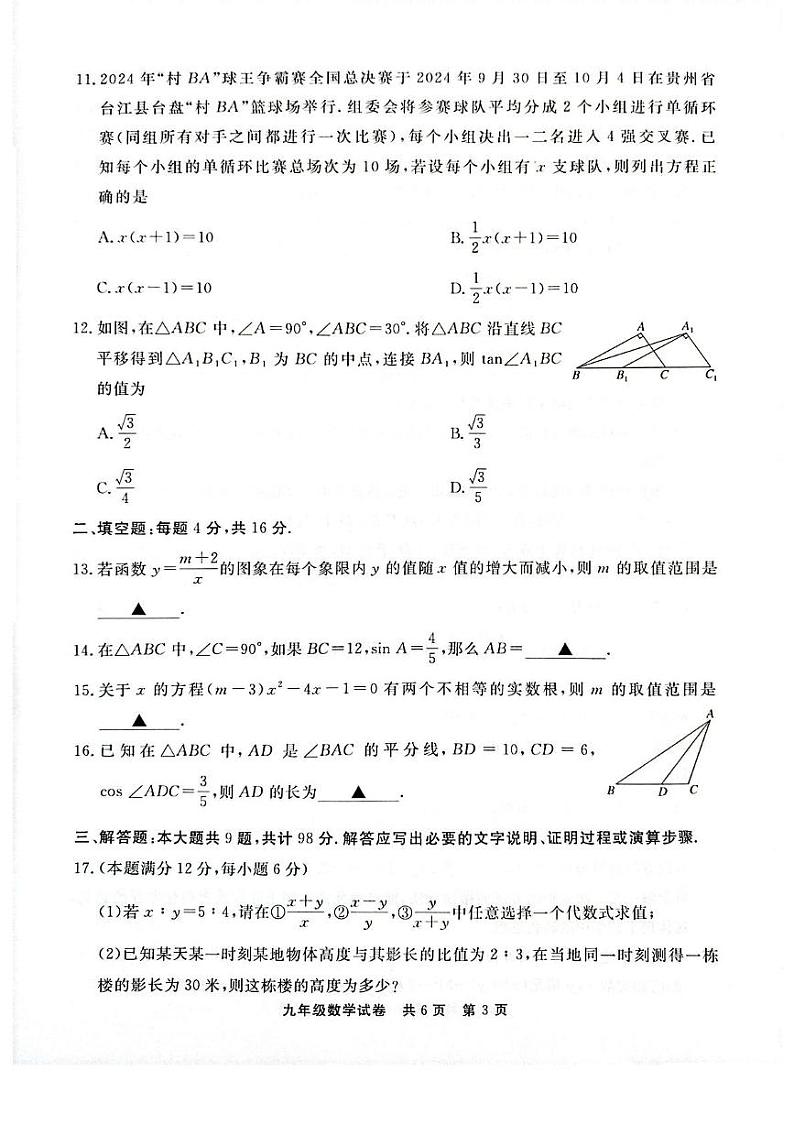 11. 2024 年“村 BA”球王争霸赛全国总决赛于 2024 年 9 月 30 日至 10 月 4 日在贵州省
台江县台盘“村 BA”篮球场举行. 组委会将参赛球队平均分成 2 个小组进行单循环
赛(同组所有对手之间都进行一次比赛), 每个小组决出一二名进入 4 强交叉赛. 已
知每个小组的单循环比赛总场次为 10 场, 若设每个小组有 x 支球队, 则列出方程正
确的是
A. x(x+1)=10 B. \frac{1}{2}x(x+1)=10
C. x(x-1)=10 D. \frac{1}{2}x(x-1)=10
12. 如图, 在△ABC 中, ∠A=90°, ∠ABC=30°. 将△ABC 沿直线 BC
平移得到△A₁B₁C₁, B₁ 为 BC 的中点, 连接 BA₁, 则 tan∠A₁BC
的值为
A A₁
B B₁ C C₁
A. \frac{√3}{2} B. \frac{√3}{3}
C. \frac{√3}{4} D. \frac{√3}{5}
二、填空题: 每题 4 分, 共 16 分.
13. 若函数 y=\frac{m+2}{x}的图象在每个象限内 y 的值随 x 值的增大而减小, 则 m 的取值范围是
▲ .
14. 在△ABC 中, ∠C=90°, 如果 BC=12, sin A=\frac{4}{5}, 那么 AB= ▲ .
15. 关于 x 的方程(m-3)x²-4x-1=0 有两个不相等的实数根, 则 m 的取值范围是
▲ .
16. 已知在△ABC 中, AD 是∠BAC 的平分线, BD = 10, CD = 6,
cos ∠ADC=\frac{3}{5}, 则 AD 的长为 ▲ .
A
B D C
三、解答题: 本大题共 9 题, 共计 98 分. 解答应写出必要的文字说明、证明过程或演算步骤.
17. (本题满分 12 分, 每小题 6 分)
(1)若 x∶y=5∶4, 请在①\frac{x+y}{x}, ②\frac{x-y}{y}, ③\frac{y}{x+y}中任意选择一个代数式求值;
(2)已知某天某一时刻某地物体高度与其影长的比值为 2∶3, 在当地同一时刻测得一栋
楼的影长为 30 米, 则这栋楼的高度为多少?
九年级数学试卷 共 6 页 第 3 页